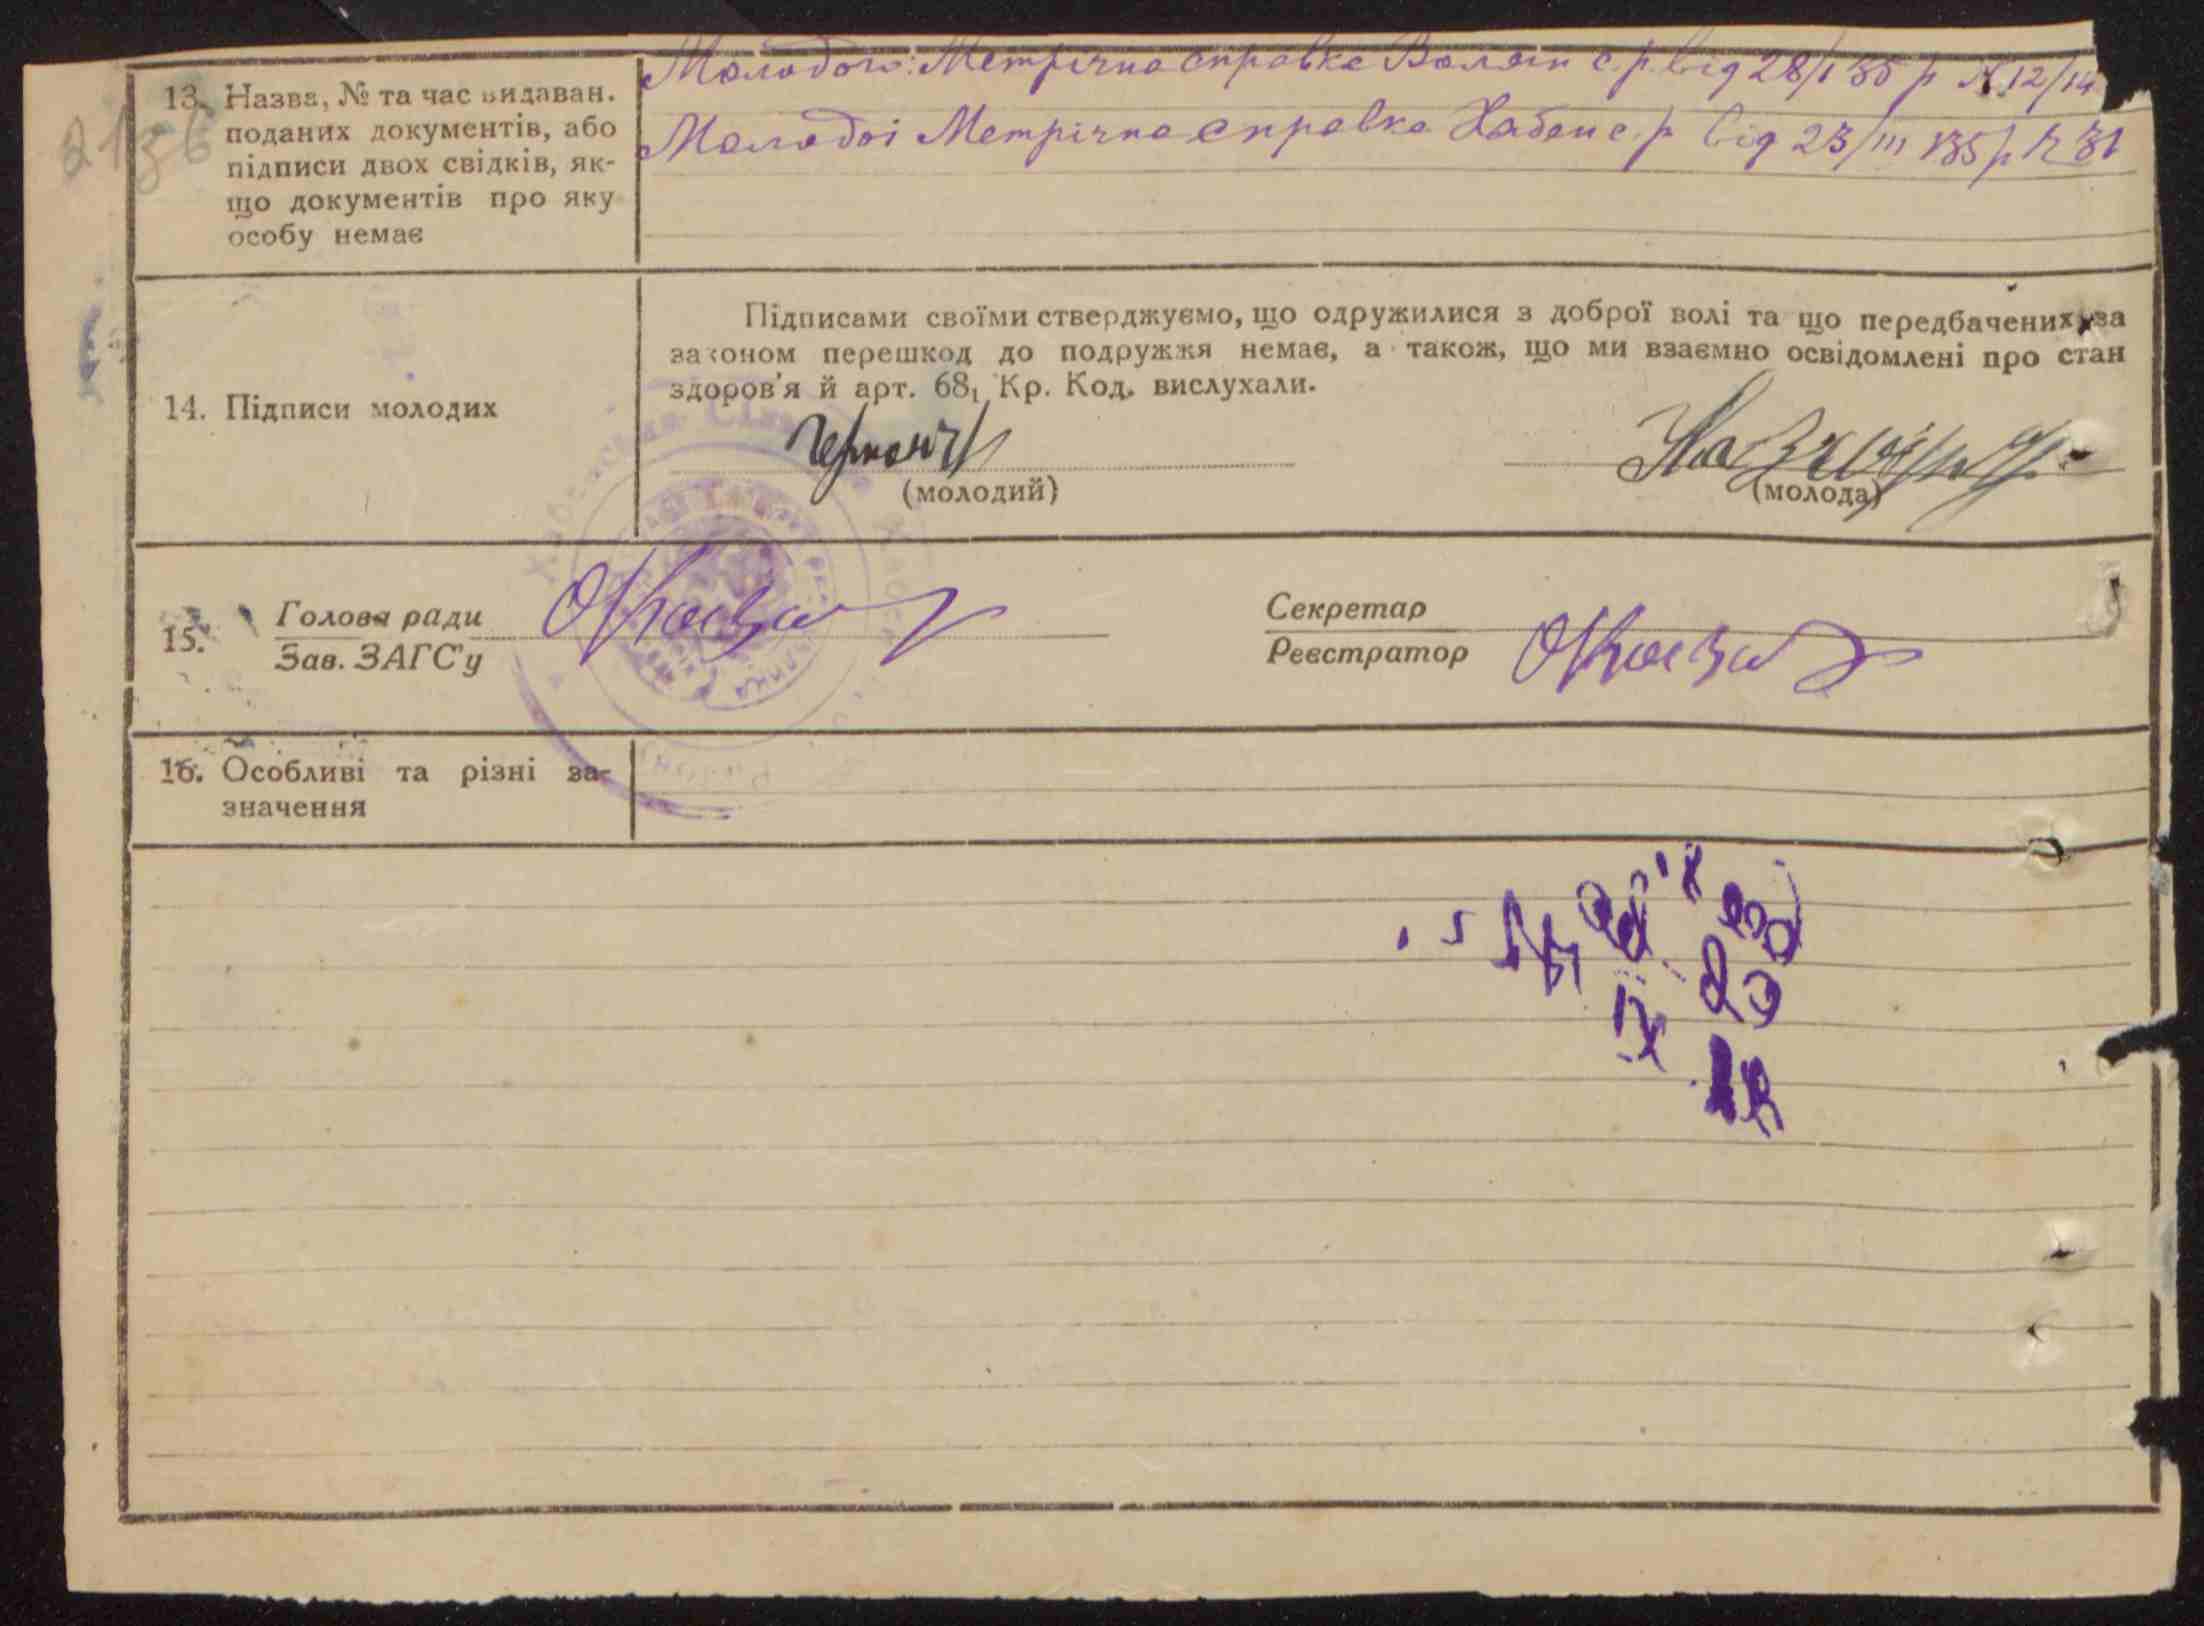 13. Назва, № та час видаван. поданих документів, або підписи двох свідків, як-що документів про яку особу немає
Молодого: Метрічна справка Волян с.р. від 28/I 35 р № 12/14
Молодоі Метрічна справка Хабен с.р від 23/III 135 р № 31
2136
14. Підписи молодих
Підписами своїми стверджуємо, що одружилися з доброї волі та що передбачених за
законом перешкод до подружжя немає, а також, що ми взаємно освідомлені про стан
здоров'я й арт. 68₁ Кр. Код. вислухали.
(молодий)
(молода)
15.
Голова ради
Зав. ЗАГС'у
Секретар
Реєстратор
16. Особливі та різні за-
значення